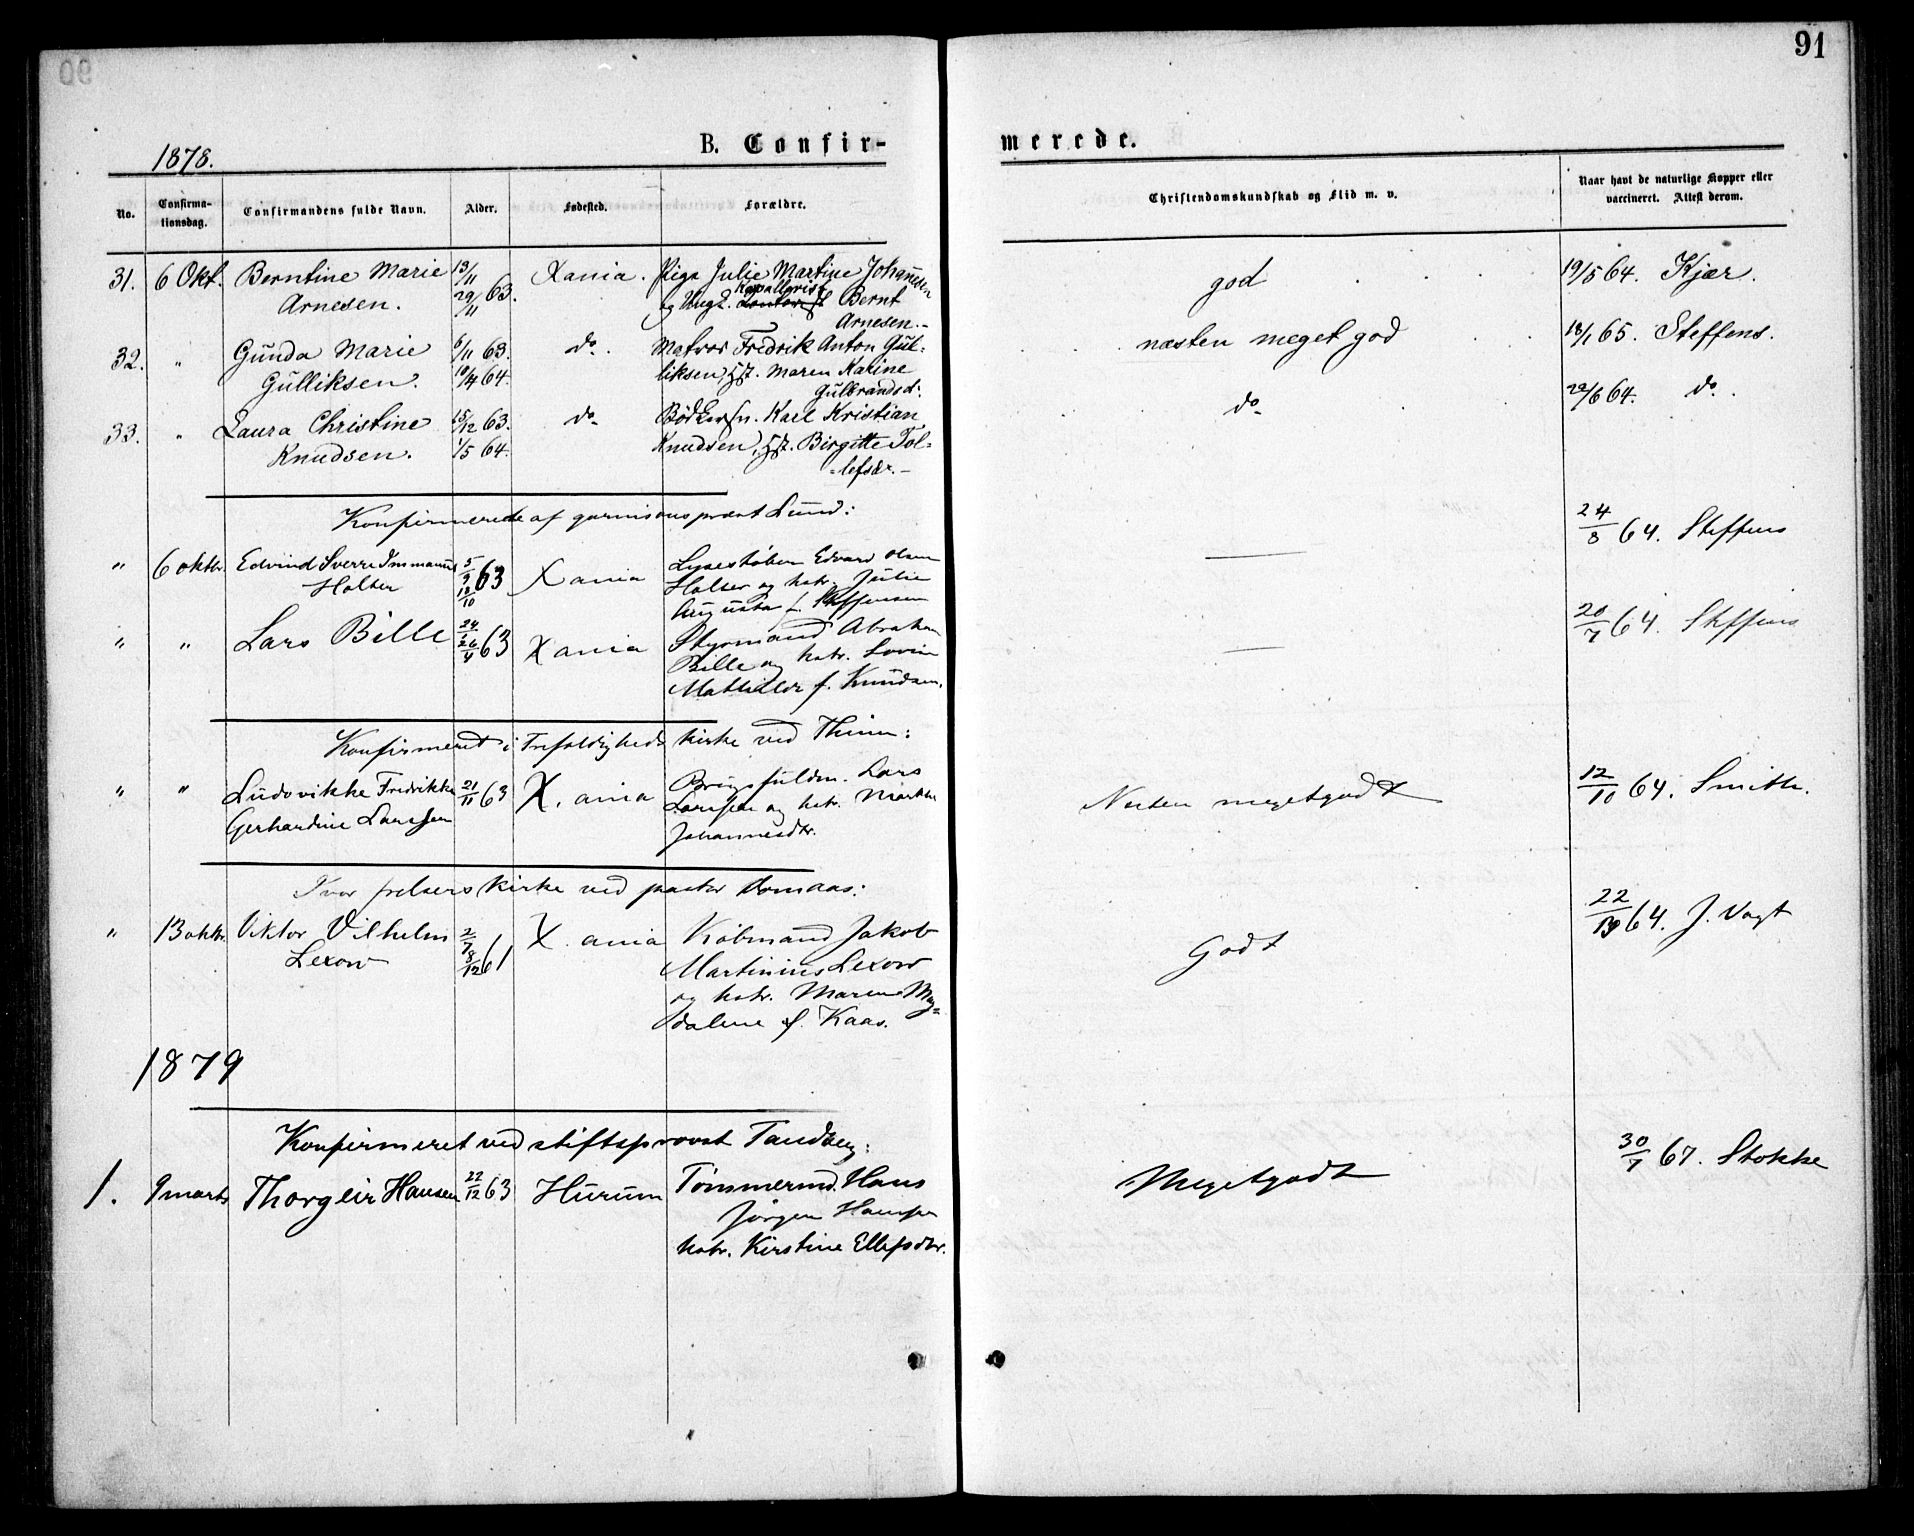 91
1878.
B. Confir-
merede.
No.
Confirma-
tionsdag.
Confirmandens fulde Navn.
Alder.
Fødested.
Forældre.
Christendomskundskab og Flid m. v.
Naar havt de naturlige Kopper eller
vaccineret. Attest derom.
31. 6 Okt. Berntine Marie 13/11 Xania. Pige Julie Martine Johannesen god 19/5 64. Kjær.
Arnesen. 29/11 63. og Ungk. Bernt
Arnesen.-
32. " Gunda Marie 6/11 63. do. Matros Fredrik Anton Gul- næsten meget god 18/1 65. Steffens.
Gulliksen. 10/4 64. liksen, Maren Karine
Gulbrandsd:
33. " Laura Christine 15/12 63. do Karl Kristian do 22/6 64. do.
Knudsen. 1/5 64. Knudsen, Birgitte Tol=
=lefsdr.-
Konfirmerede af garnisonsprest Lund:
" 6 oktbr. Edvind Sverre Immanuel 5/9 63 Xania Edvard Olsen 24/8 64. Steffens
Holter 18/10 Holter og hstr. Julie
Augusta f. Steffensen
" " Lars Bille 24/ 26/4 63 Xania Styrmand Abraham 20/7 64. Steffens
Bille og hstr. Lovise
Mathilde f. Knudsen.
Konfirmeret i Trefoldigheds kirke ved Thinn:
" " Ludovikke Fredrikke 21/11 63 X.ania Lars Nesten megetgodt 12/10 64. Smith.
Gerhardine Larssen Larssen og hstr. Marthe
Johannesdtr.
I vor frelsers kirke ved pastor
" 13 oktbr. Viktor Vilhelm 2/7 X.ania Købmand Jakob Godt 22/ 64. J. Vogt
Lexow 8/12 61 Martinius Lexow
og hstr. Maren Mag=
dalene f. Kaas.
1879
Konfirmeret ved stiftsprovst Tandberg:
1. 9 marts Thorgleir Hansen 22/12 63 Hurum Tømmermd. Hans Megetgodt 30/7 67. Stokke
Jørgen Hansen
hstr. Kirstine Ellefsdtr.